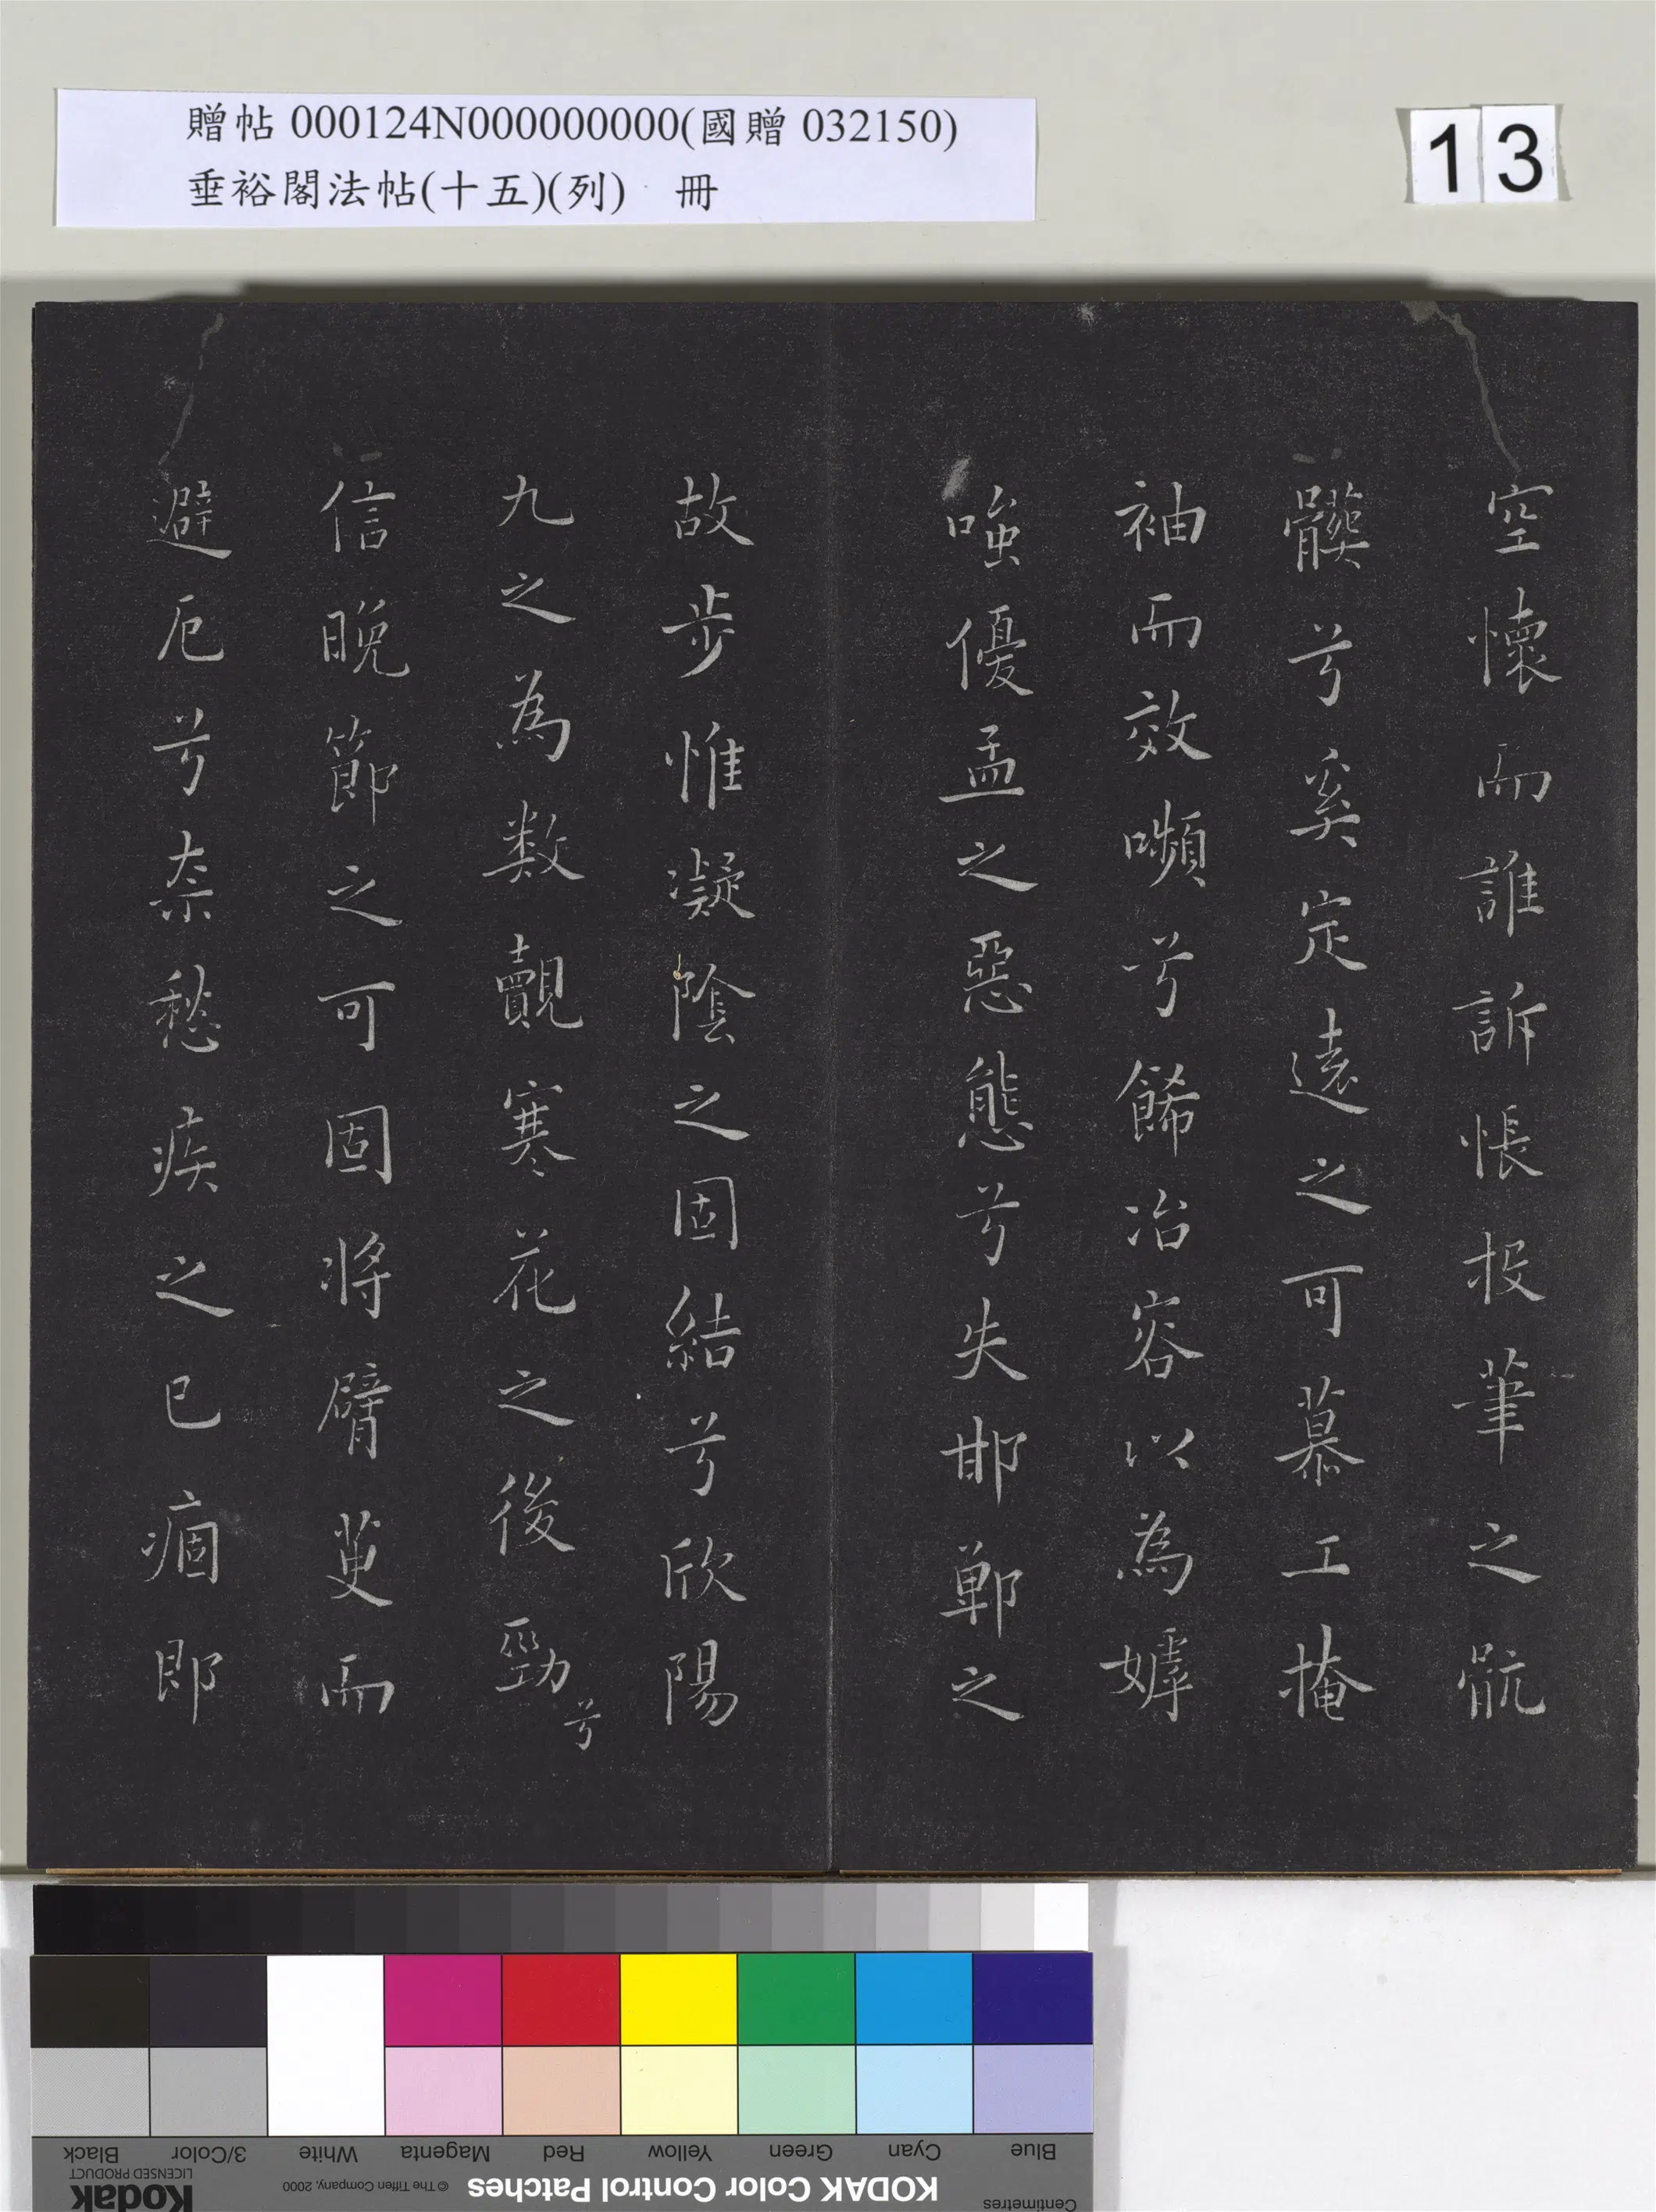 贈帖 000124N000000000(國贈 032150)
垂裕閣法帖(十五)(列) 冊
13
空懷而誰訴悵投筆之骯
髒兮奚定遠之可慕工掩
袖而效嚬兮餙冶容以為嫭
嗤優孟之惡態兮失邯鄲之
故步惟凝陰之固結兮欣陽
九之為数覿寒花之後勁兮
信晚節之可固將臂萸而
避厄兮柰愁疾之已痼即
Blue
Cyan
Green
Yellow
Red
Magenta
White
3/Color
Black
Centimetres
KODAK Color Control Patches
© The Tiffen Company, 2000
LICENSED PRODUCT
Kodak